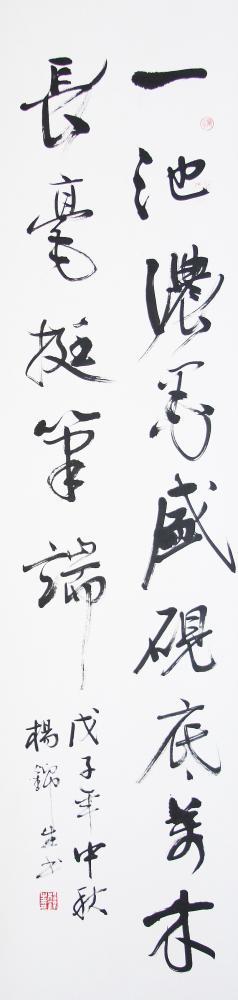 一池濃墨盛硯底萬木
長毫挺筆端
戊子年中秋
楊錦生書